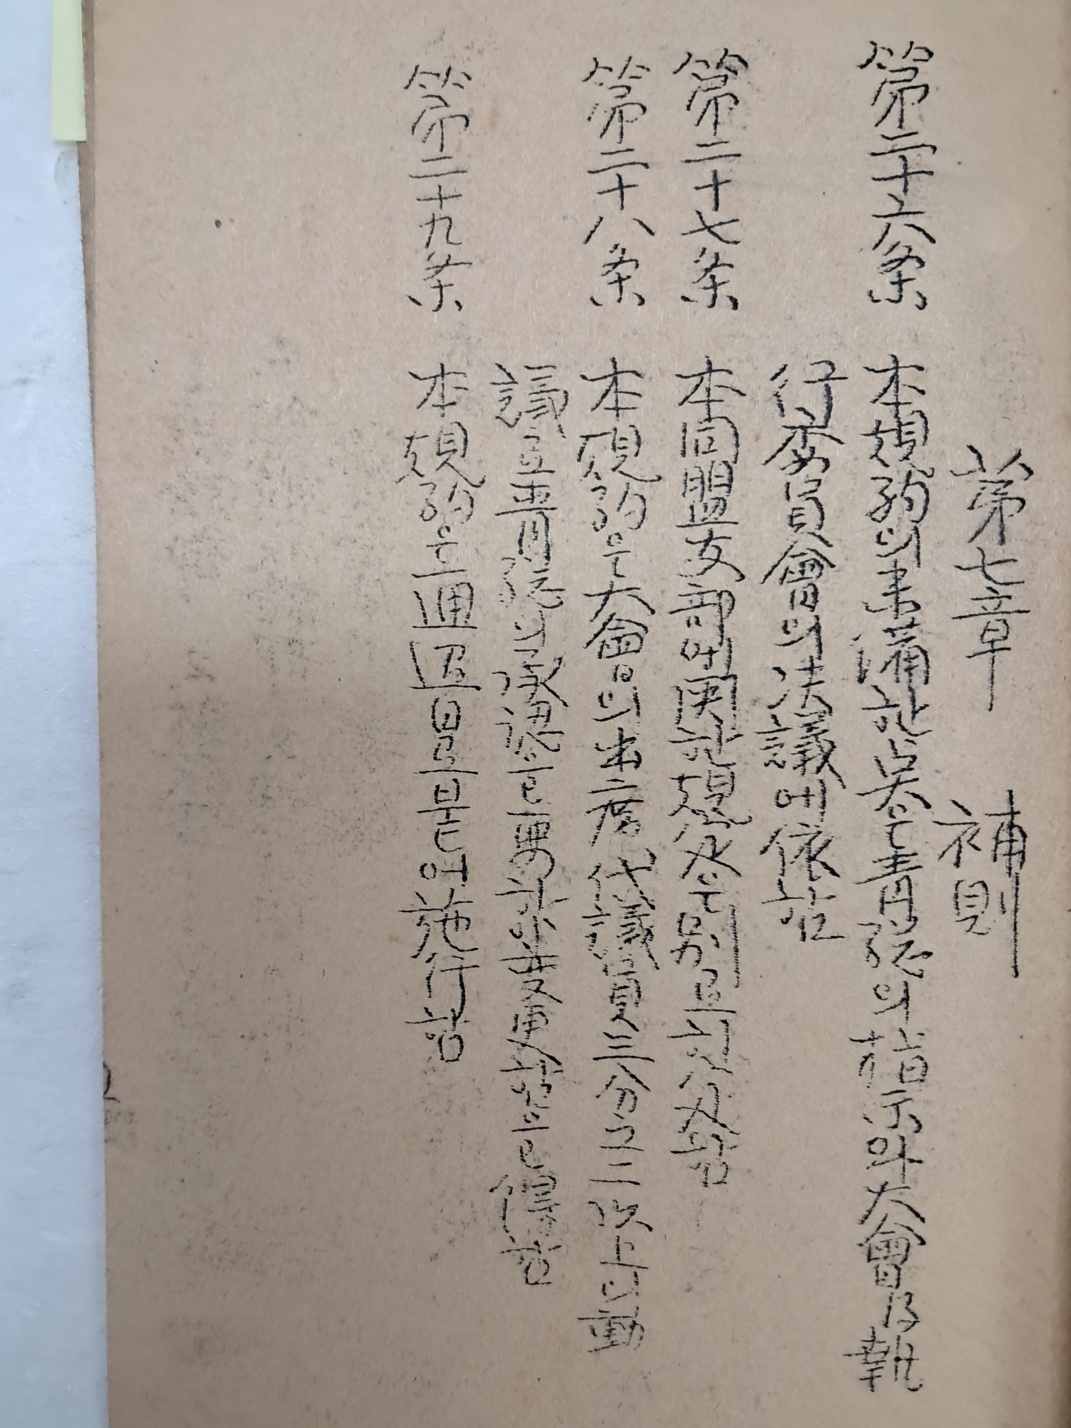 第七章 補則
第二十六条 本規約의未備한点은青総의指示와大會及執
行委員會의決議에依함
第二十七条 本同盟支部에関한規定은別로히定함
第二十八条 本規約은大會의出席代議員三分之二以上의動
議로青総의承認을要하야変更함을得함
第二十九条 本規約은通過日로부터施行함